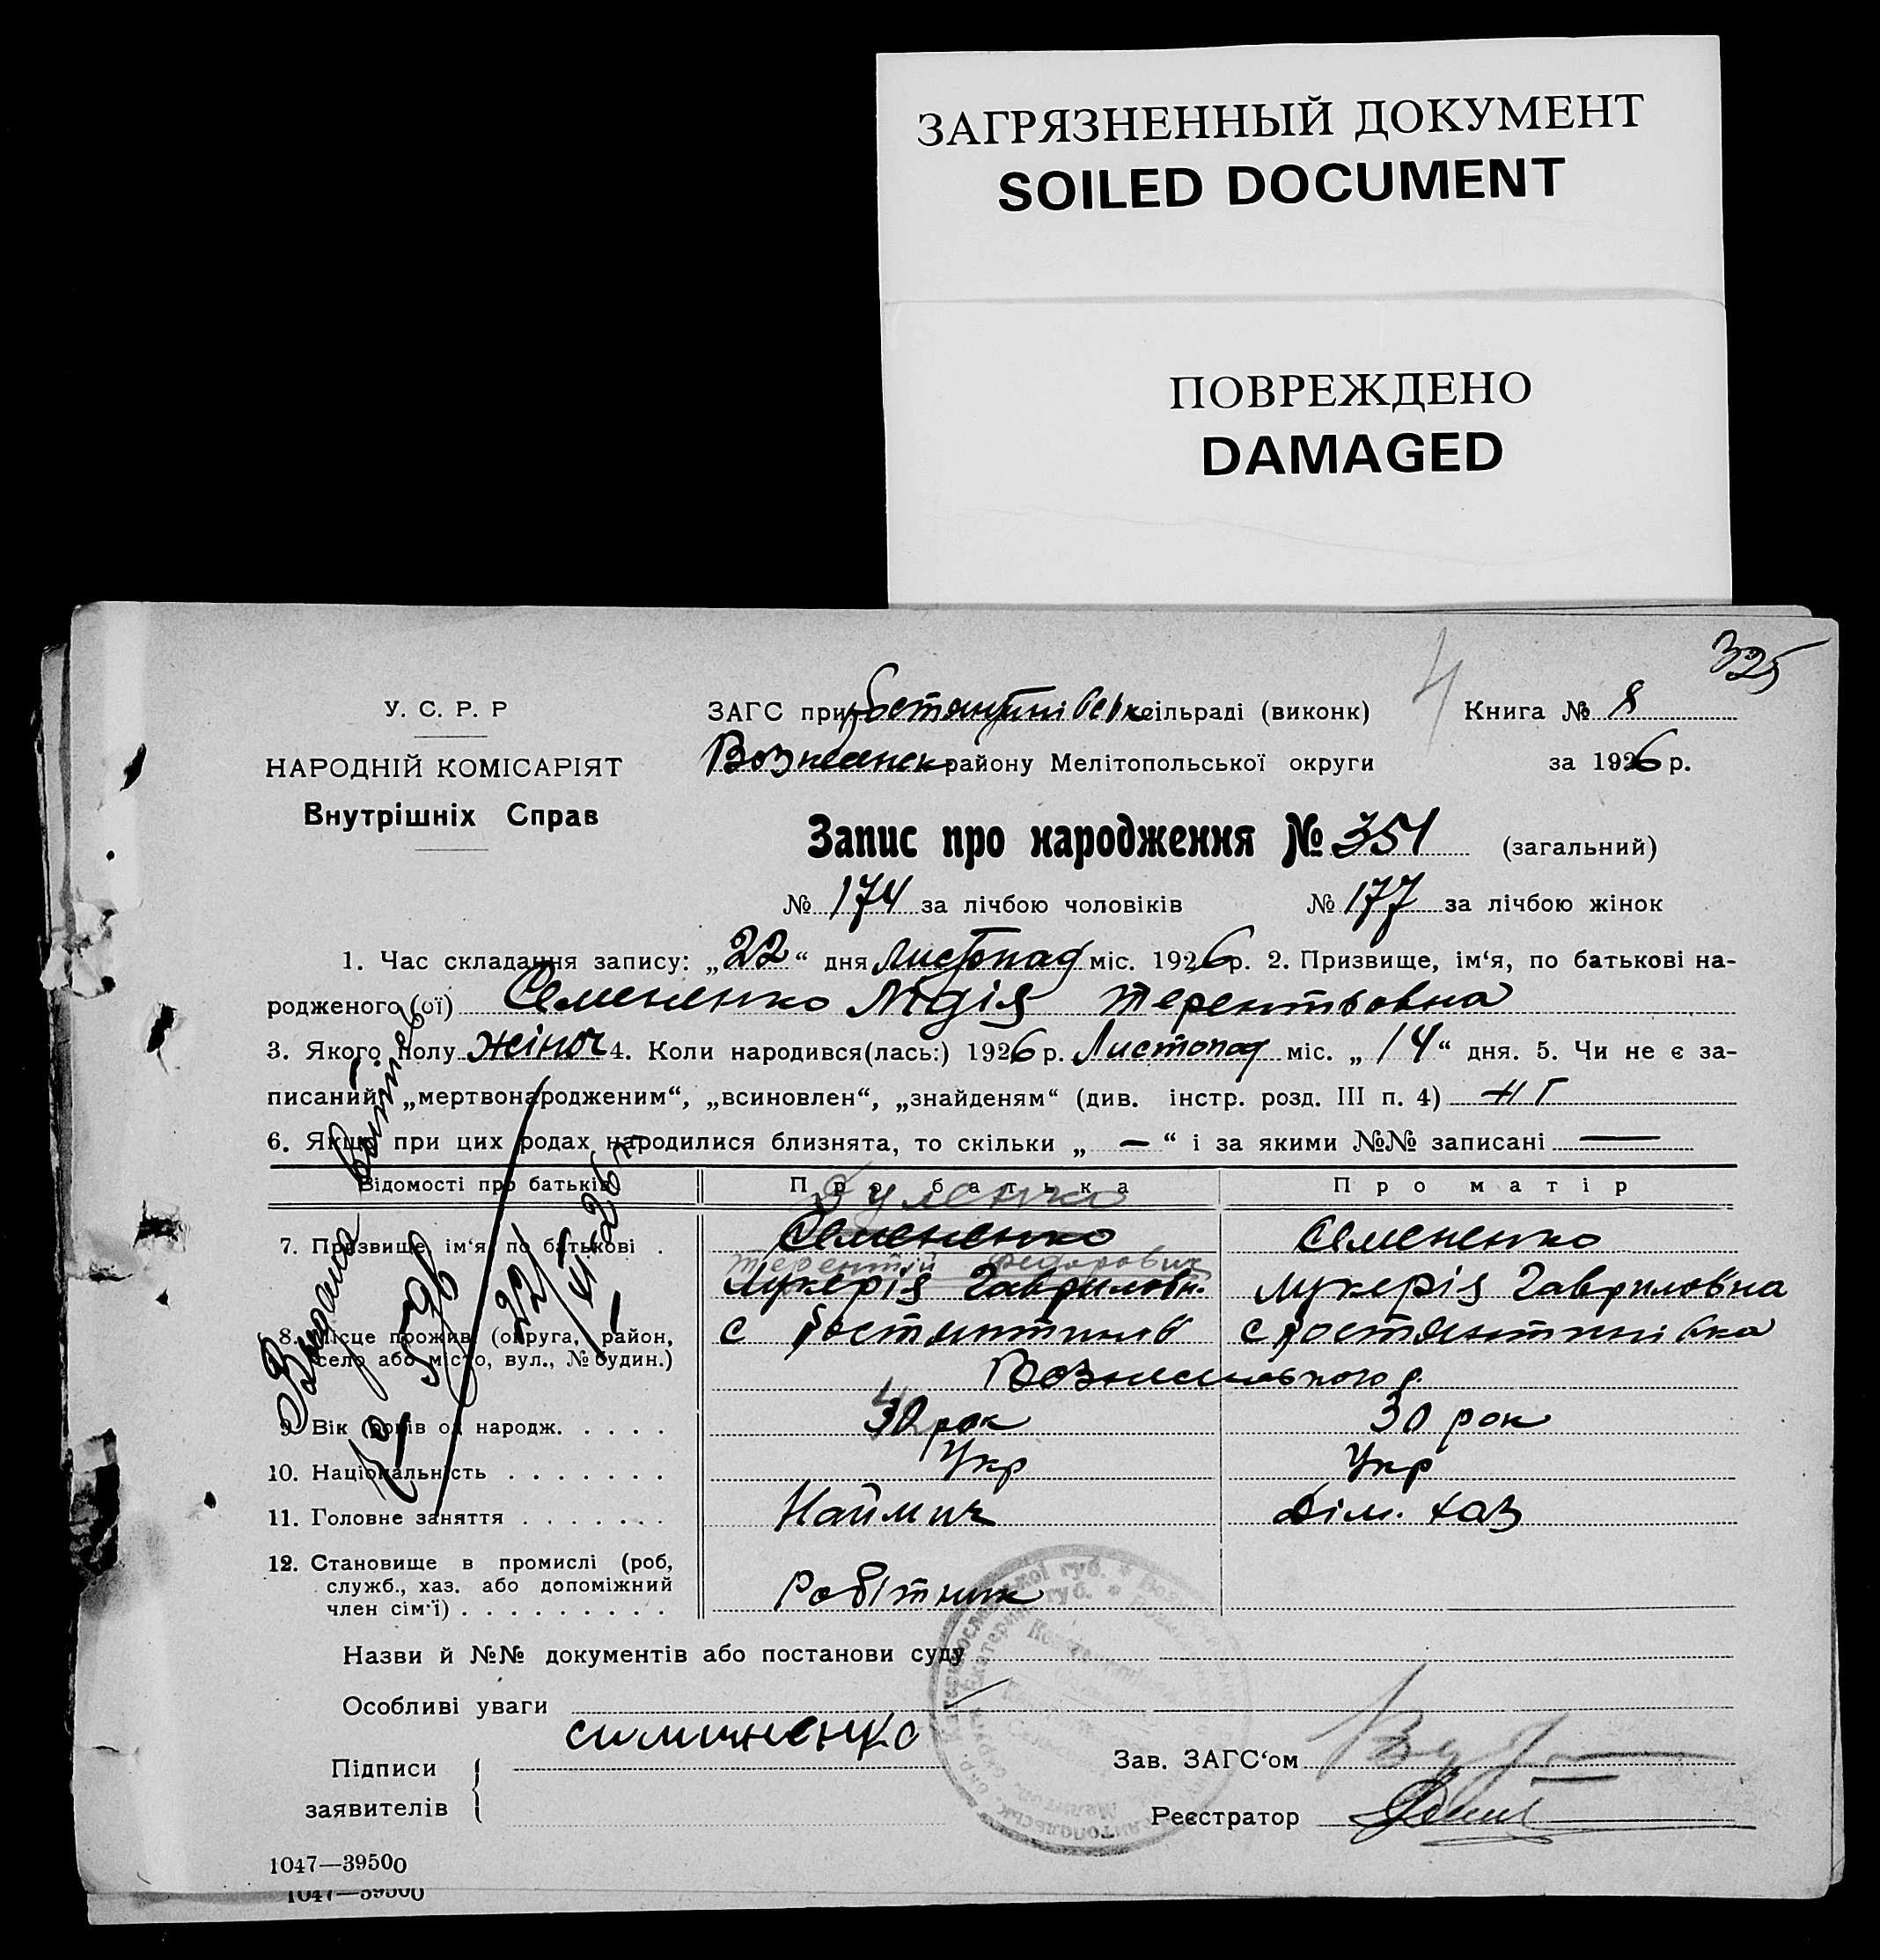 ЗАГРЯЗНЕННЫЙ ДОКУМЕНТ
SOILED DOCUMENT
ПОВРЕЖДЕНО
DAMAGED
325
4
У. С. Р. Р
НАРОДНІЙ КОМІСАРІЯТ
Внутрішніх Справ
ЗАГС при сільраді (виконк) Книга № 8
району Мелітопольської округи за 1926 р.
Запис про народження № 351 (загальний)
№ 174 за лічбою чоловіків № 177 за лічбою жінок
1. Час складання запису: „22“ дня Листопад міс. 1926 р. 2. Призвище, ім‘я, по батькові на-
родженого (ої) Семененко Лідія Терентьовна
3. Якого полу жіноч 4. Коли народився(лась:) 1926 р. Листопад міс. „14“ дня. 5. Чи не є за-
писаний „мертвонародженим“, „всиновлен“, „знайденям“ (див. інстр. розд. III п. 4)
6. Якщо при цих родах народилися близнята, то скільки „ — “ і за якими №№ записані —
Відомості про батьків Про батька Про матір
7. Призвище, ім‘я, по батькові . Семененко Семененко
Терентій Федорович
Лукерія Гавриловн. Лукерія Гавриловна
8. Місце прожив. (округа, район,
село або місто, вул., № будин.)
9. Вік (років од народж. . . . . 30 рок 30 рок
10. Національність . . . . . . . Укр Укр
11. Головне заняття . . . . . . . Наймит Дім. хаз
12. Становище в промислі (роб,
служб., хаз. або допоміжний
член сім‘ї) . . . . . . . . . Робітник
Назви й №№ документів або постанови суду
Особливі уваги
симиненко
Підписи
заявителів
Зав. ЗАГС‘ом
Реєстратор
1047—39500
1047—39500